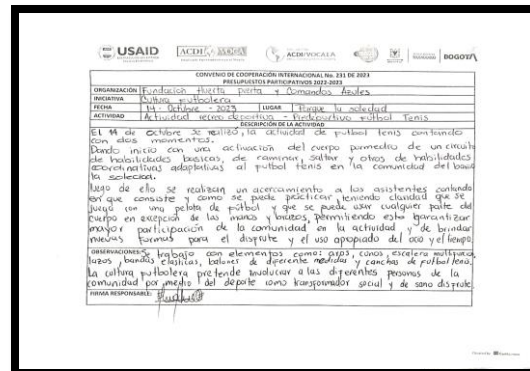 USAID ACDI VOCA ACDI/VOCA LA BOGOTÁ
CONVENIO DE COOPERACIÓN INTERNACIONAL No. 231 DE 2023
PRESUPUESTOS PARTICIPATIVOS 2022-2023
ORGANIZACIÓN Fundación Huerta puerta y Comandos Azules
INICIATIVA Cultura futbolera
FECHA 14 - Octubre - 2023 LUGAR Parque la soledad
ACTIVIDAD Actividad recreo deportiva - Predeportivo fútbol Tenis
DESCRIPCIÓN DE LA ACTIVIDAD
El 14 de octubre se realizó, la actividad de futbol tenis contando
con dos momentos.
Dando inicio con una activación del cuerpo por medio de un circuito
de habilidades basicas, de caminar, saltar y otros de habilidades
coordinativas adaptativas al futbol tenis en la comunidad del barrio
la soledad.
luego de ello se realizan un acercamiento a los asistentes contando
en que consiste y como se puede practicar, teniendo claridad que se
juega con una pelota de fútbol y que se puede usar cualquier parte del
cuerpo en excepción de las manos y brazos, permitiendo esto garantizar
mayor participación de la comunidad en la actividad y de brindar
nuevas formas para el disfrute y el uso apropiado del ocio y el tiempo.
OBSERVACIONES: Se trabajo con elementos como: aros, conos, escalera
lazos, bandas elasticas, balones de diferente medidas y canchas de futbol tenis.
La cultura futbolera pretende involucrar a las diferentes personas de la
comunidad por medio del deporte como transformador social y de sano disfrute.
FIRMA RESPONSABLE: